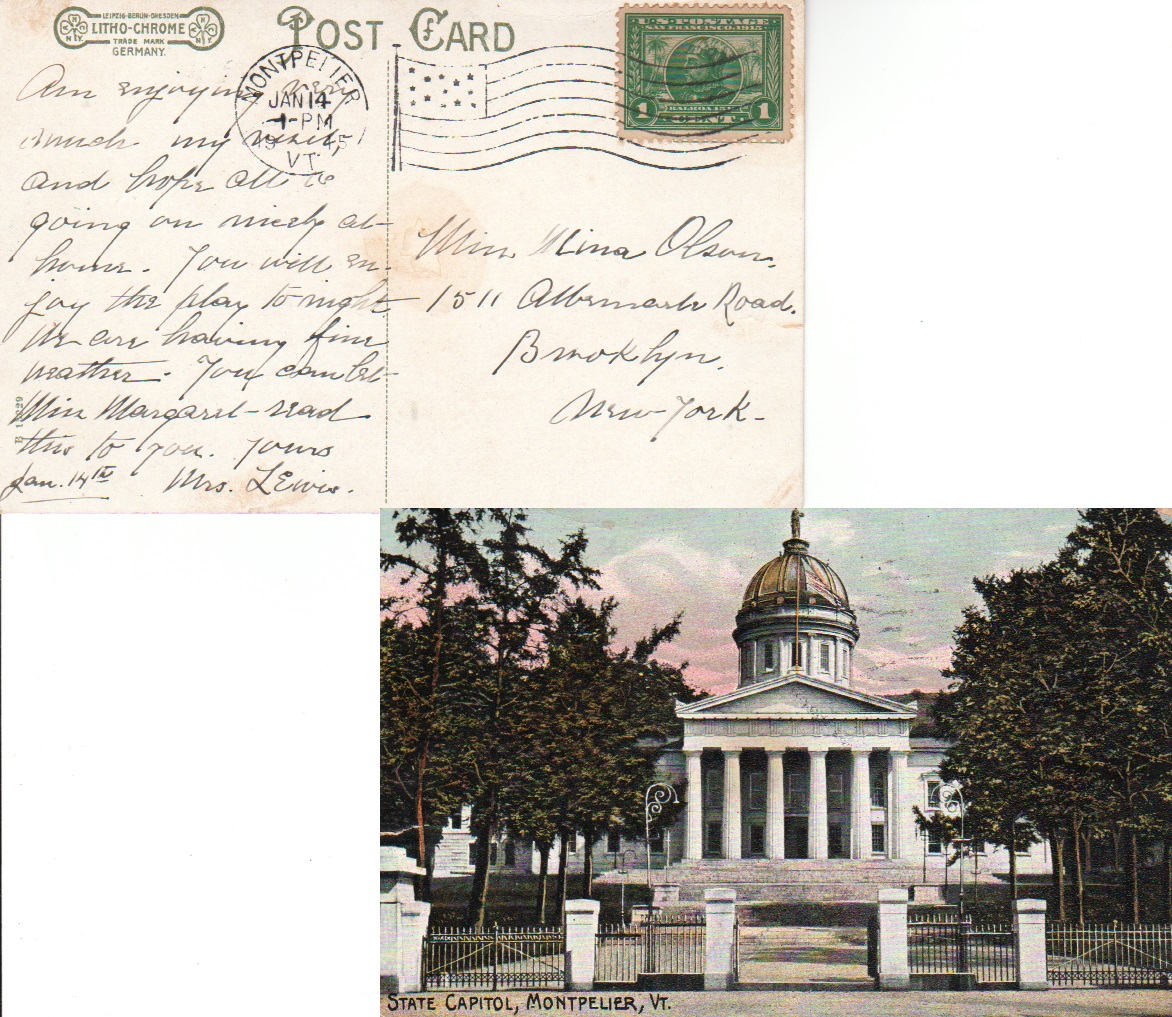 LEIPZIG-BERLIN-DRESDEN
LITHO-CHROME
TRADE MARK
GERMANY.
POST CARD
U.S. POSTAGE
SAN FRANCISCO 1915
BALBOA 1513
1 CENT 1
MONTPELIER
JAN 14
1-PM
VT.
Am enjoying very
much my visit,
and hope all is
going on nicely at
home. You will en-
joy the play to-night
We are having fine
weather. You can let
Miss Margaret read
this to you. Yours
Jan. 14th Mrs. Lewis.
Miss Mina Olson,
1511 Albemarle Road.
Brooklyn,
New York-
STATE CAPITOL, MONTPELIER, VT.